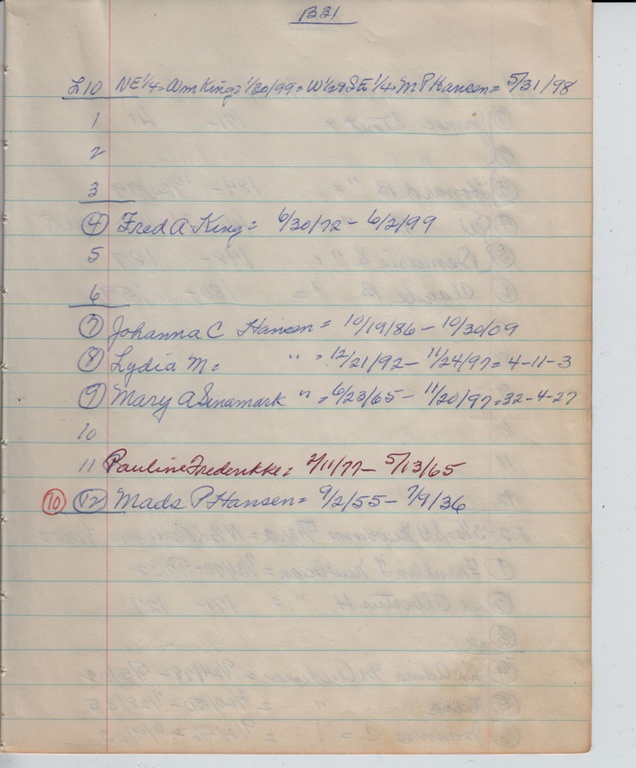 B21
L10 NE 1/4 = Wm King = 1/30/99 = W 1/2 9 SE 1/4 = M P Hansen = 5/31/98
1
2
3
4 Fred A King = 6/30/72 - 6/2/99
5
6
7 Johanna C Hansen = 10/19/86 - 10/30/09
8 Lydia M = " = 12/21/92 - 11/24/97 = 4-11-3
9 Mary A Senamark " = 6/23/65 - 11/20/97 = 32-4-27
10
11 Pauline Frederikke = 2/11/77 - 5/13/65
10 12 Mads P Hansen = 9/2/55 - 7/9/36